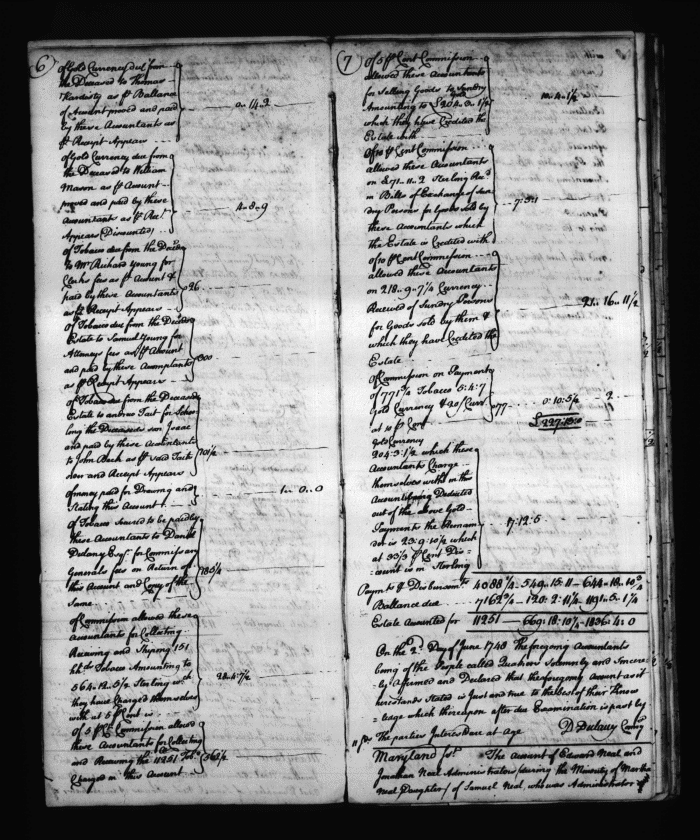 6
of Gold Currency due from
the Deceased to Thomas
Hardisty as ℔ Ballance
of Account proved and paid
by these Accountants as
℔ Receipt Appears
0..14..2
of Gold Currency due from
the Deceased to William
Mason as ℔ Account
proved and paid by these
Accountants as ℔ Rec.t
Appears (Discounted)
4..8..9
of Tobacco due from the Deced
to Mr Richard Young for
Clerks fees as ℔ Account &
paid by these Accountants
as ℔ Receipt Appears
26
of Tobacco due from the Deced
Estate to Samuel Young for
Attorneys fees as ℔ Account
and paid by these Accomptants
as ℔ Receipt Appears
300
of Tobacco due from the Deceased
Estate to for Schoo
ling the Deceaseds son Isaac
and paid by these Accountants
to John Beck as ℔ said
and Receipt Appears
701/2
of money paid for Drawing and
Stating this Account
1.. 0..0
of Tobacco Secured to be paid by
these Accountants to Daniel
Dulany Esqr. for Commissary
Generals fees on Return of
this Account and Copy of the
Same
of Commission allowed these
Accountants for Collecting
Receiving and Shiping 151
hhds Tobacco Amounting to
564..12..5/2 Sterling wch
they have Charged themselves
with at 5 ℔ Cent is
22..4..7/2
of 5 ℔ Ct Commission allowed
these Accountants for Collecting
and Receiving the 11251 Tobo
Charged in this Account
562 1/2
7
Of 5 ℔ Cent Commission
allowed these Accountants
for Selling Goods to Sundry
Amounting to £204..3..1/2
which they have Credited the
Estate with
10..4..1/2
Of 10 ℔ Cent Commission
allowed these Accountants
on £71..11..2 Sterling Recd
in Bills of Exchange of Sun
dry Persons for Goods sold by
these Accountants which
the Estate is Credited with
7:3:1
of 10 ℔ Cent Commission
allowed these Accountants
on 218..9..7/4 Currency
Received of Sundry Persons
for Goods sold by them &
which they have Credited the
Estate
21.. 16.. 11/2
of Commission on Payment
of 771 3/4 Tobacco 5:4:7
Gold Currency & 20/ Curr.
at 10 ℔ Cent
77 0:10:5/2 2
£227:13:0
Gold Currency
204:3:1/2 which these
Accountants Charge
themselves with in this
Account being Deducted
out of the above Gold
Payments the Remain
der is 23:9:10/2 which
at 33/3 ℔ Cent Dis=
count is in Sterling
17:12:5
Paymts & Disbursmts 4088 3/4 549..15:11 644..18..10 3/4
Ballance due 7162 1/4 120:2:11/4 1191..5..1/4
Estate Accounted for 11251 669:18:10/4 1836:4:0
On the 2d Day of June 1740 The foregoing Accountants
being of the People called Quakers Solemnly and Sincere=
=ly Affirmed and Declared that the foregoing Account as it
here stands Stated is Just and true to the best of their Know
=ledge which thereupon after due Examination is past by
The parties Interested are at Age D Dulany Comry
Maryland Sst. The Account of Edward Neal and
Jonathan Neal Administrators (during the Minority of Martha
Neal Daughter) of Samuel Neal, who was Administrator of